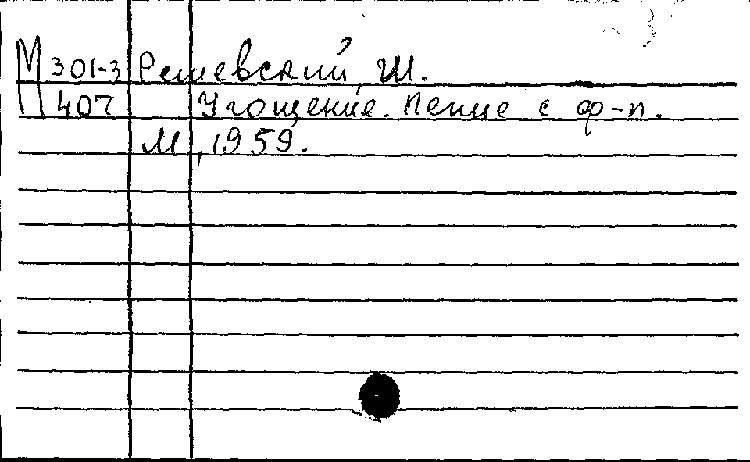 М 301-3 Решевский, Ш.
П 407 Угощение. Пение с ф-п.
М, 1959.